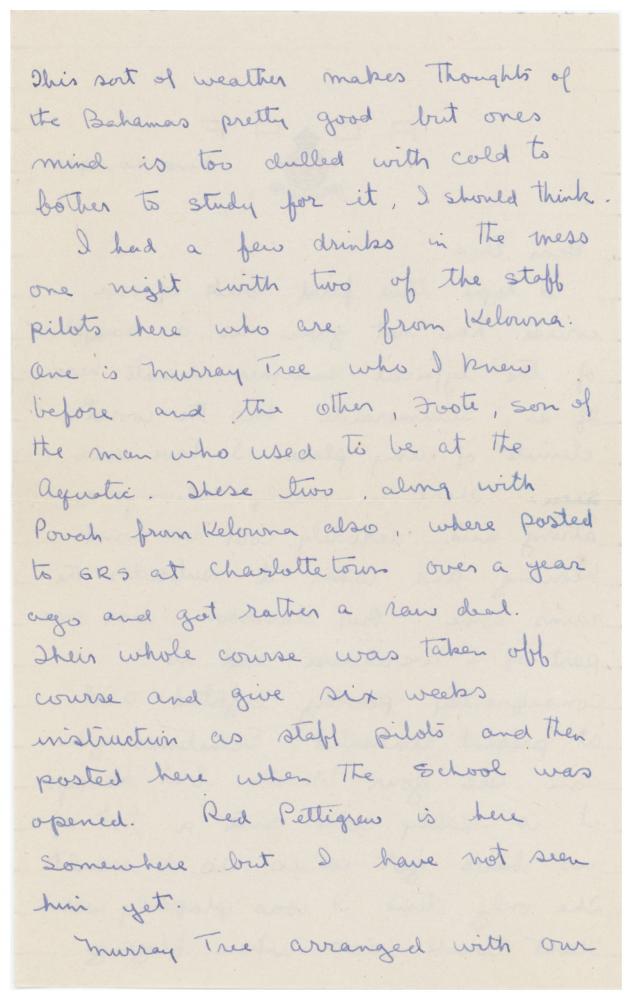 This sort of weather makes Thoughts of
the Bahamas pretty good but ones
mind is too dulled with cold to
bother to study for it, I should think.
I had a few drinks in the mess
one night with two of the staff
pilots here who are from Kelowna.
One is Murray Tree who I knew
before and the other, Foote, son of
the man who used to be at the
Aquatic. These two, along with
Povah from Kelowna also, where posted
to GRS at Charlottetown over a year
ago and got rather a raw deal.
Their whole course was taken off
course and give six weeks
instruction as staff pilots and then
posted here when the School was
opened. Red Pettigrew is here
somewhere but I have not seen
him yet.
Murray Tree arranged with our